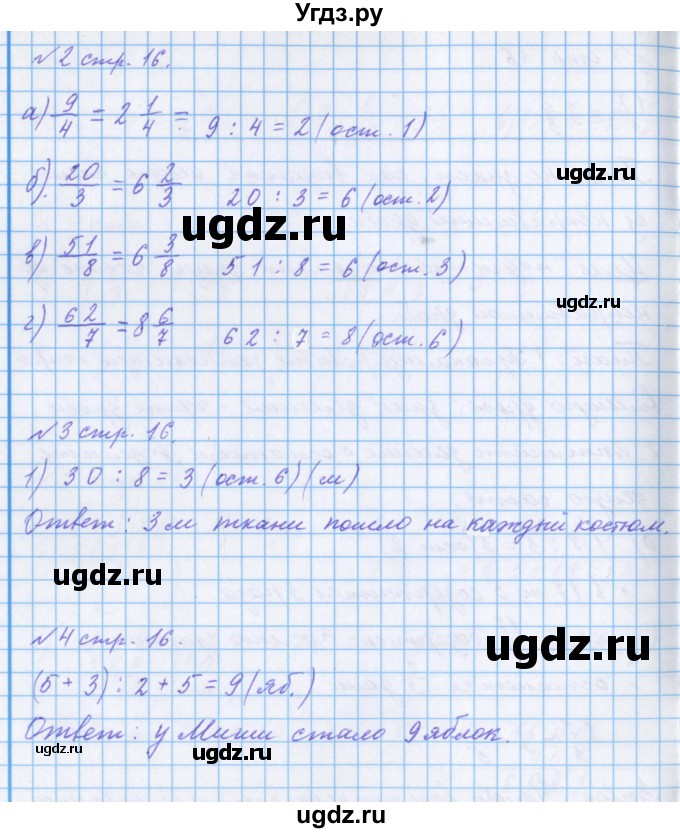 Угдз.ру
№2 стр. 16.
а) 9/4 = 2 1/4 = 9 : 4 = 2 (ост. 1)
ugdz.ru
б). 20/3 = 6 2/3 20 : 3 = 6 (ост. 2)
ugdz.ru
в) 51/8 = 6 3/8 51 : 8 = 6 (ост. 3)
ugdz.ru
г) 62/7 = 8 6/7 62 : 7 = 8 (ост. 6)
№3 стр. 16.
1) 30 : 8 = 3 (ост. 6) (м)
Ответ: 3м ткани пошло на каждый костюм.
ugdz.ru
№4 стр. 16.
ugdz.ru
(5 + 3) : 2 + 5 = 9 (яб.)
Ответ: у Миши стало 9 яблок.
ugdz.ru
ugdz.ru
ugdz.ru
ugdz.ru